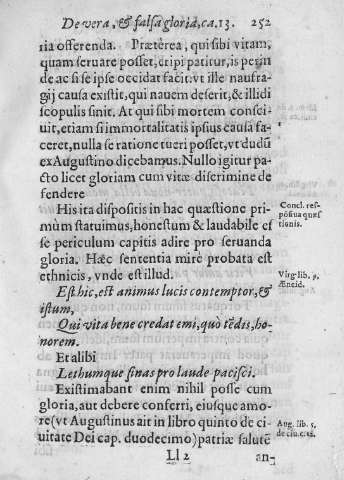 De vera, & falsa gloria, ca. 13. 252
ria offerenda. Præterea, qui sibi vitam,
quam seruare posset, eripi patitur, is perin
de ac si se ipse occidat facit: vt ille naufra-
gij causa existit, qui nauem deserit, & illidi
scopulis sinit. At qui sibi mortem consci-
uit, etiam si immortalitatis ipsius causa fa-
ceret, nulla se ratione tueri posset, vt dudũ
ex Augustino dicebamus. Nullo igitur pa-
cto licet gloriam cum vitæ discrimine de
fendere
His ita dispositis in hac quæstione pri-
mùm statuimus, honestum & laudabile es
se periculum capitis adire pro seruanda
gloria. Hæc sententia mirè probata est
ethnicis, vnde est illud.
Concl. res-
põsiua quæs
tionis.
Virg. lib. 9.
Æneid.
Est hic, est animus lucis contemptor, &
istum,
Qui vita bene credat emi, quò tẽdis, ho-
norem.
Et alibi
Lethumque sinas pro laude pacisci.
Existimabant enim nihil posse cum
gloria, aut debere conferri, eiusque amo-
re (vt Augustinus ait in libro quinto de ci
uitate Dei cap. duodecimo) patriæ salutẽ
Aug. lib. 5.
de ciu. c. 12.
Ll 2 an-